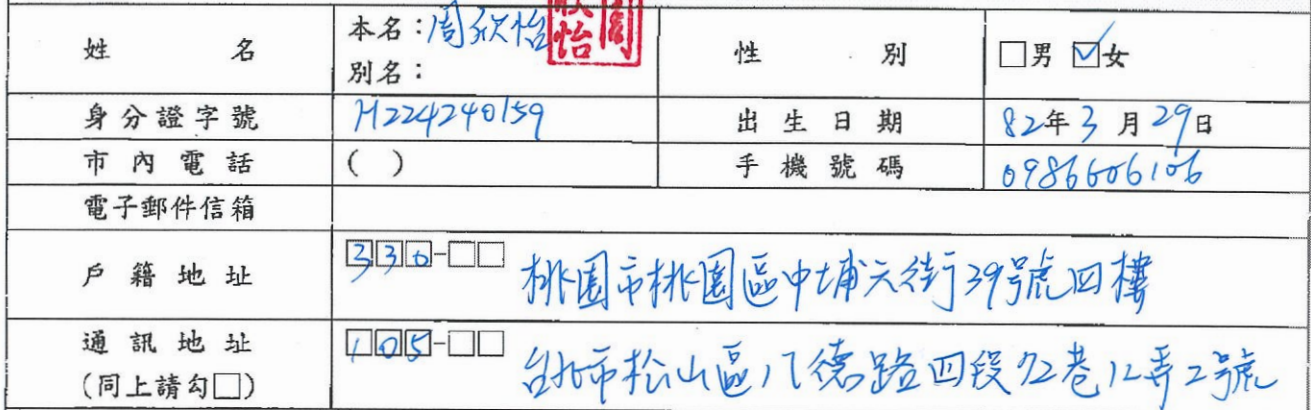 姓 名 本名：周欣怡 周欣怡 性 別 □男 ☑女
別名：
身分證字號 H224240159 出生日期 82年3月29日
市內電話 ( ) 手機號碼 0986606106
電子郵件信箱
戶籍地址 330-□□ 桃園市桃園區中埔六街39號四樓
通訊地址 105-□□ 台北市松山區八德路四段72巷12弄2號
(同上請勾□)